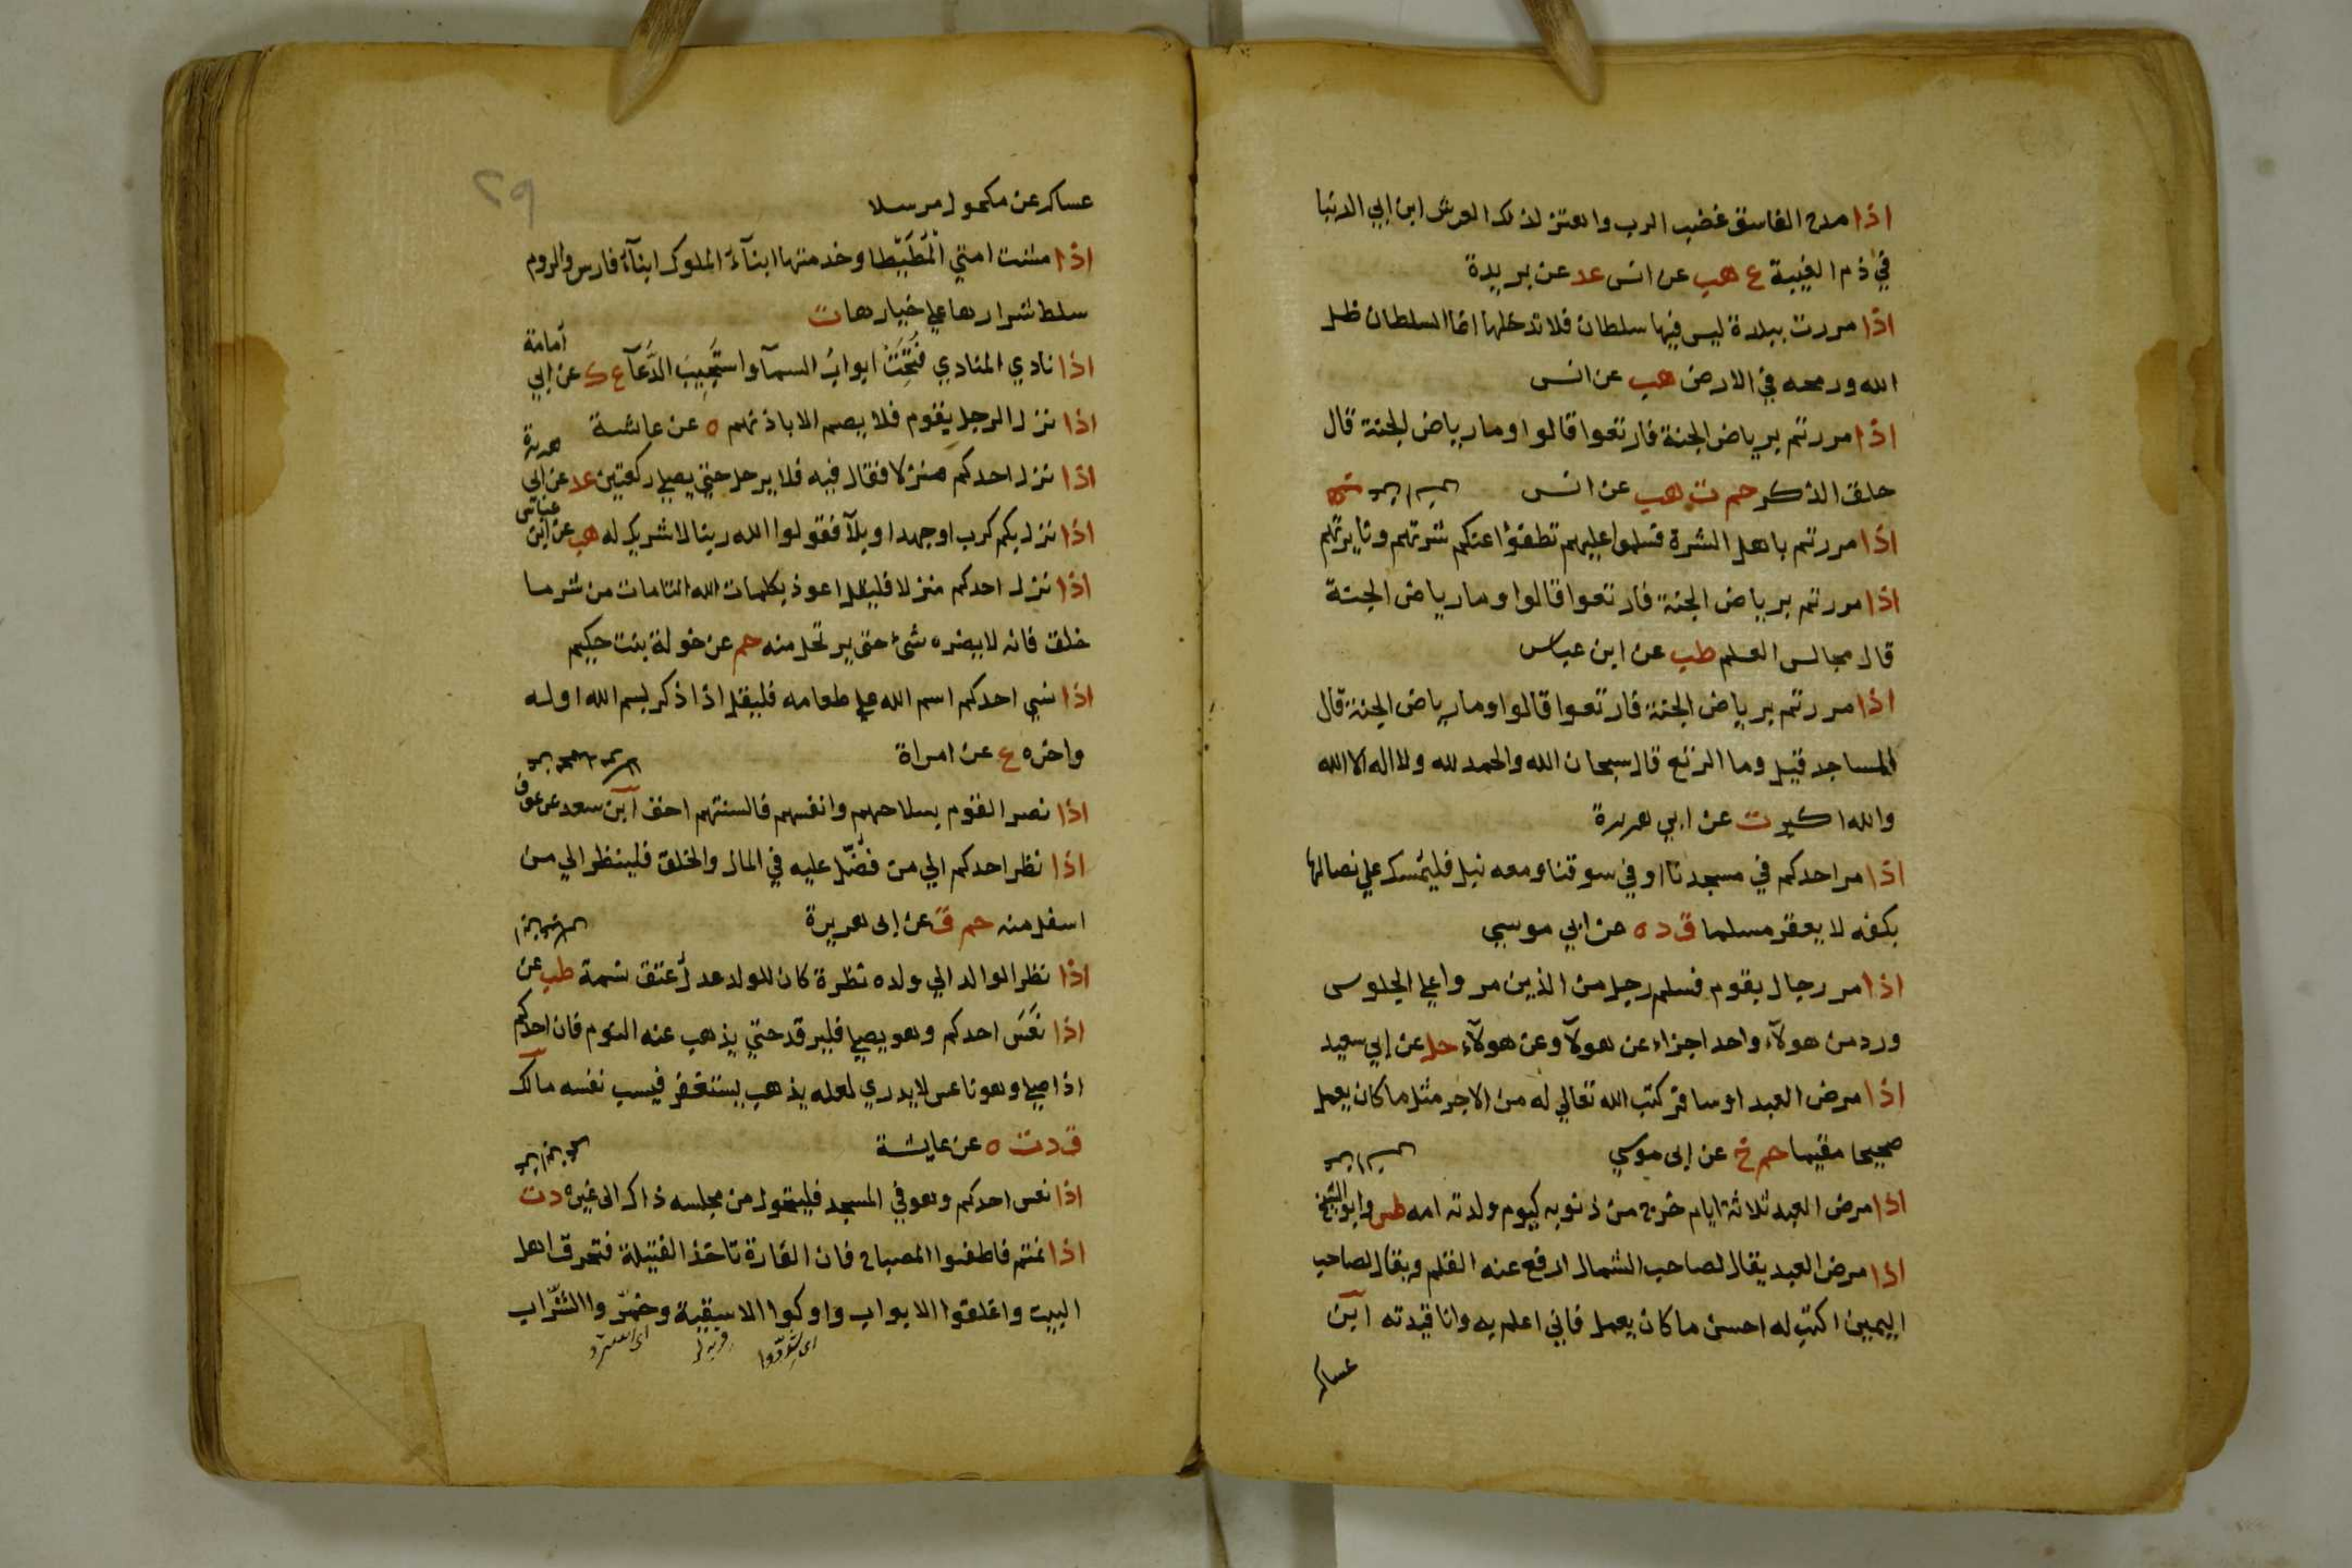 اذا مدح الفاسق غضب الرب واهتز لذلك العرش ابن ابي الدنيا
في ذم الغيبة ع هب عن انس عد عن بريدة
اذا مررت ببلدة ليس فيها سلطان فلا تدخلها انما السلطان ظل
الله ورمحه في الارض هب عن انس
اذا مررتم برياض الجنة فارتعوا قالوا وما رياض الجنة قال
حلق الذكر حم ت هب عن انس
اذا مررتم باهل الشرة فسلموا عليهم تطفؤا عنكم شرتهم ونايرتهم
اذا مررتم برياض الجنة فارتعوا قالوا وما رياض الجنة
قال مجالس العلم طب عن ابن عباس
اذا مررتم برياض الجنة فارتعوا قالوا وما رياض الجنة قال
المساجد قيل وما الرتع قال سبحان الله والحمد لله ولا اله الا الله
والله اكبر ت عن ابي هريرة
اذا مر احدكم في مسجدنا او في سوقنا ومعه نبل فليمسك علي نصالها
بكفه لا يعقر مسلما ق د ه عن ابي موسي
اذا مر رجال بقوم فسلم رجل من الذين مروا علي الجلوس
ورد من هولآء واحد اجزاء عن هولآ وعن هولآء حل عن ابي سعيد
اذا مرض العبد او سافر كتب الله تعالي له من الاجر مثل ما كان يعمل
صحيحا مقيما حم خ عن ابى موسي
اذا مرض العبد ثلاثة ايام خرج من ذنوبه كيوم ولدته امه طس وابو الشيخ
اذا مرض العبد يقال لصاحب الشمال ارفع عنه القلم ويقال لصاحب
اليمين اكتب له احسن ما كان يعمل فاني اعلم به وانا قيدته ابن
عساكر
٢٩
عساكر عن مكحول مرسلا
اذا مشت امتي المطيطا وخدمتها ابنآء الملوك ابنآء فارس والروم
سلط شرارها علي خيارها ت
اذا نادي المنادي فُتِّحَتْ ابوابُ السمآ واستُجِيبَ الدُّعآ ع ك عن ابي امامة
اذا نزل الرجل بقوم فلا يصم الا باذنهم ه عن عائشة
اذا نزل احدكم منزلا فقال فيه فلا يرحل حتي يصلي ركعتين عد عن ابي هريرة
اذا نزل بكم كرب او جهد او بلآ فقولوا الله ربنا لا شريك له هب عن ابن عباس
اذا نزل احدكم منزلا فليقل اعوذ بكلمات الله التامات من شر ما
خلق فانه لا يضره شئ حتى يرتحل منه حم عن خولة بنت حكيم
اذا نسي احدكم اسم الله علي طعامه فليقل اذا ذكر بسم الله اوله
واخره ع عن امراة
اذا نصر القوم بسلاحهم وانفسهم فالسنتهم احق ابن سعد عن عوف
اذا نظر احدكم الي من فُضّل عليه في المال والخلق فلينظر الي من
اسفل منه حم ق عن ابى هريرة
اذا نظر الوالد الي ولده نظرة كان للولد عدل عتق نسمة طب عن
اذا نَعَسَ احدكم وهو يصلي فليرقد حتي يذهب عنه النوم فان احدكم
اذا صلي وهو ناعس لا يدري لعله يذهب يستغفر فيسب نفسه مالك
ق د ت ه عن عايشة
اذا نعس احدكم وهو في المسجد فليتحول من مجلسه ذاك الى غيره د ت
اذا نمتم فاطفوا المصباح فان الفارة تاخذ الفتيلة فتحرق اهل
البيت واغلقوا الابواب واوكوا الاسقية وخمّروا الشّراب
اى شدّوا